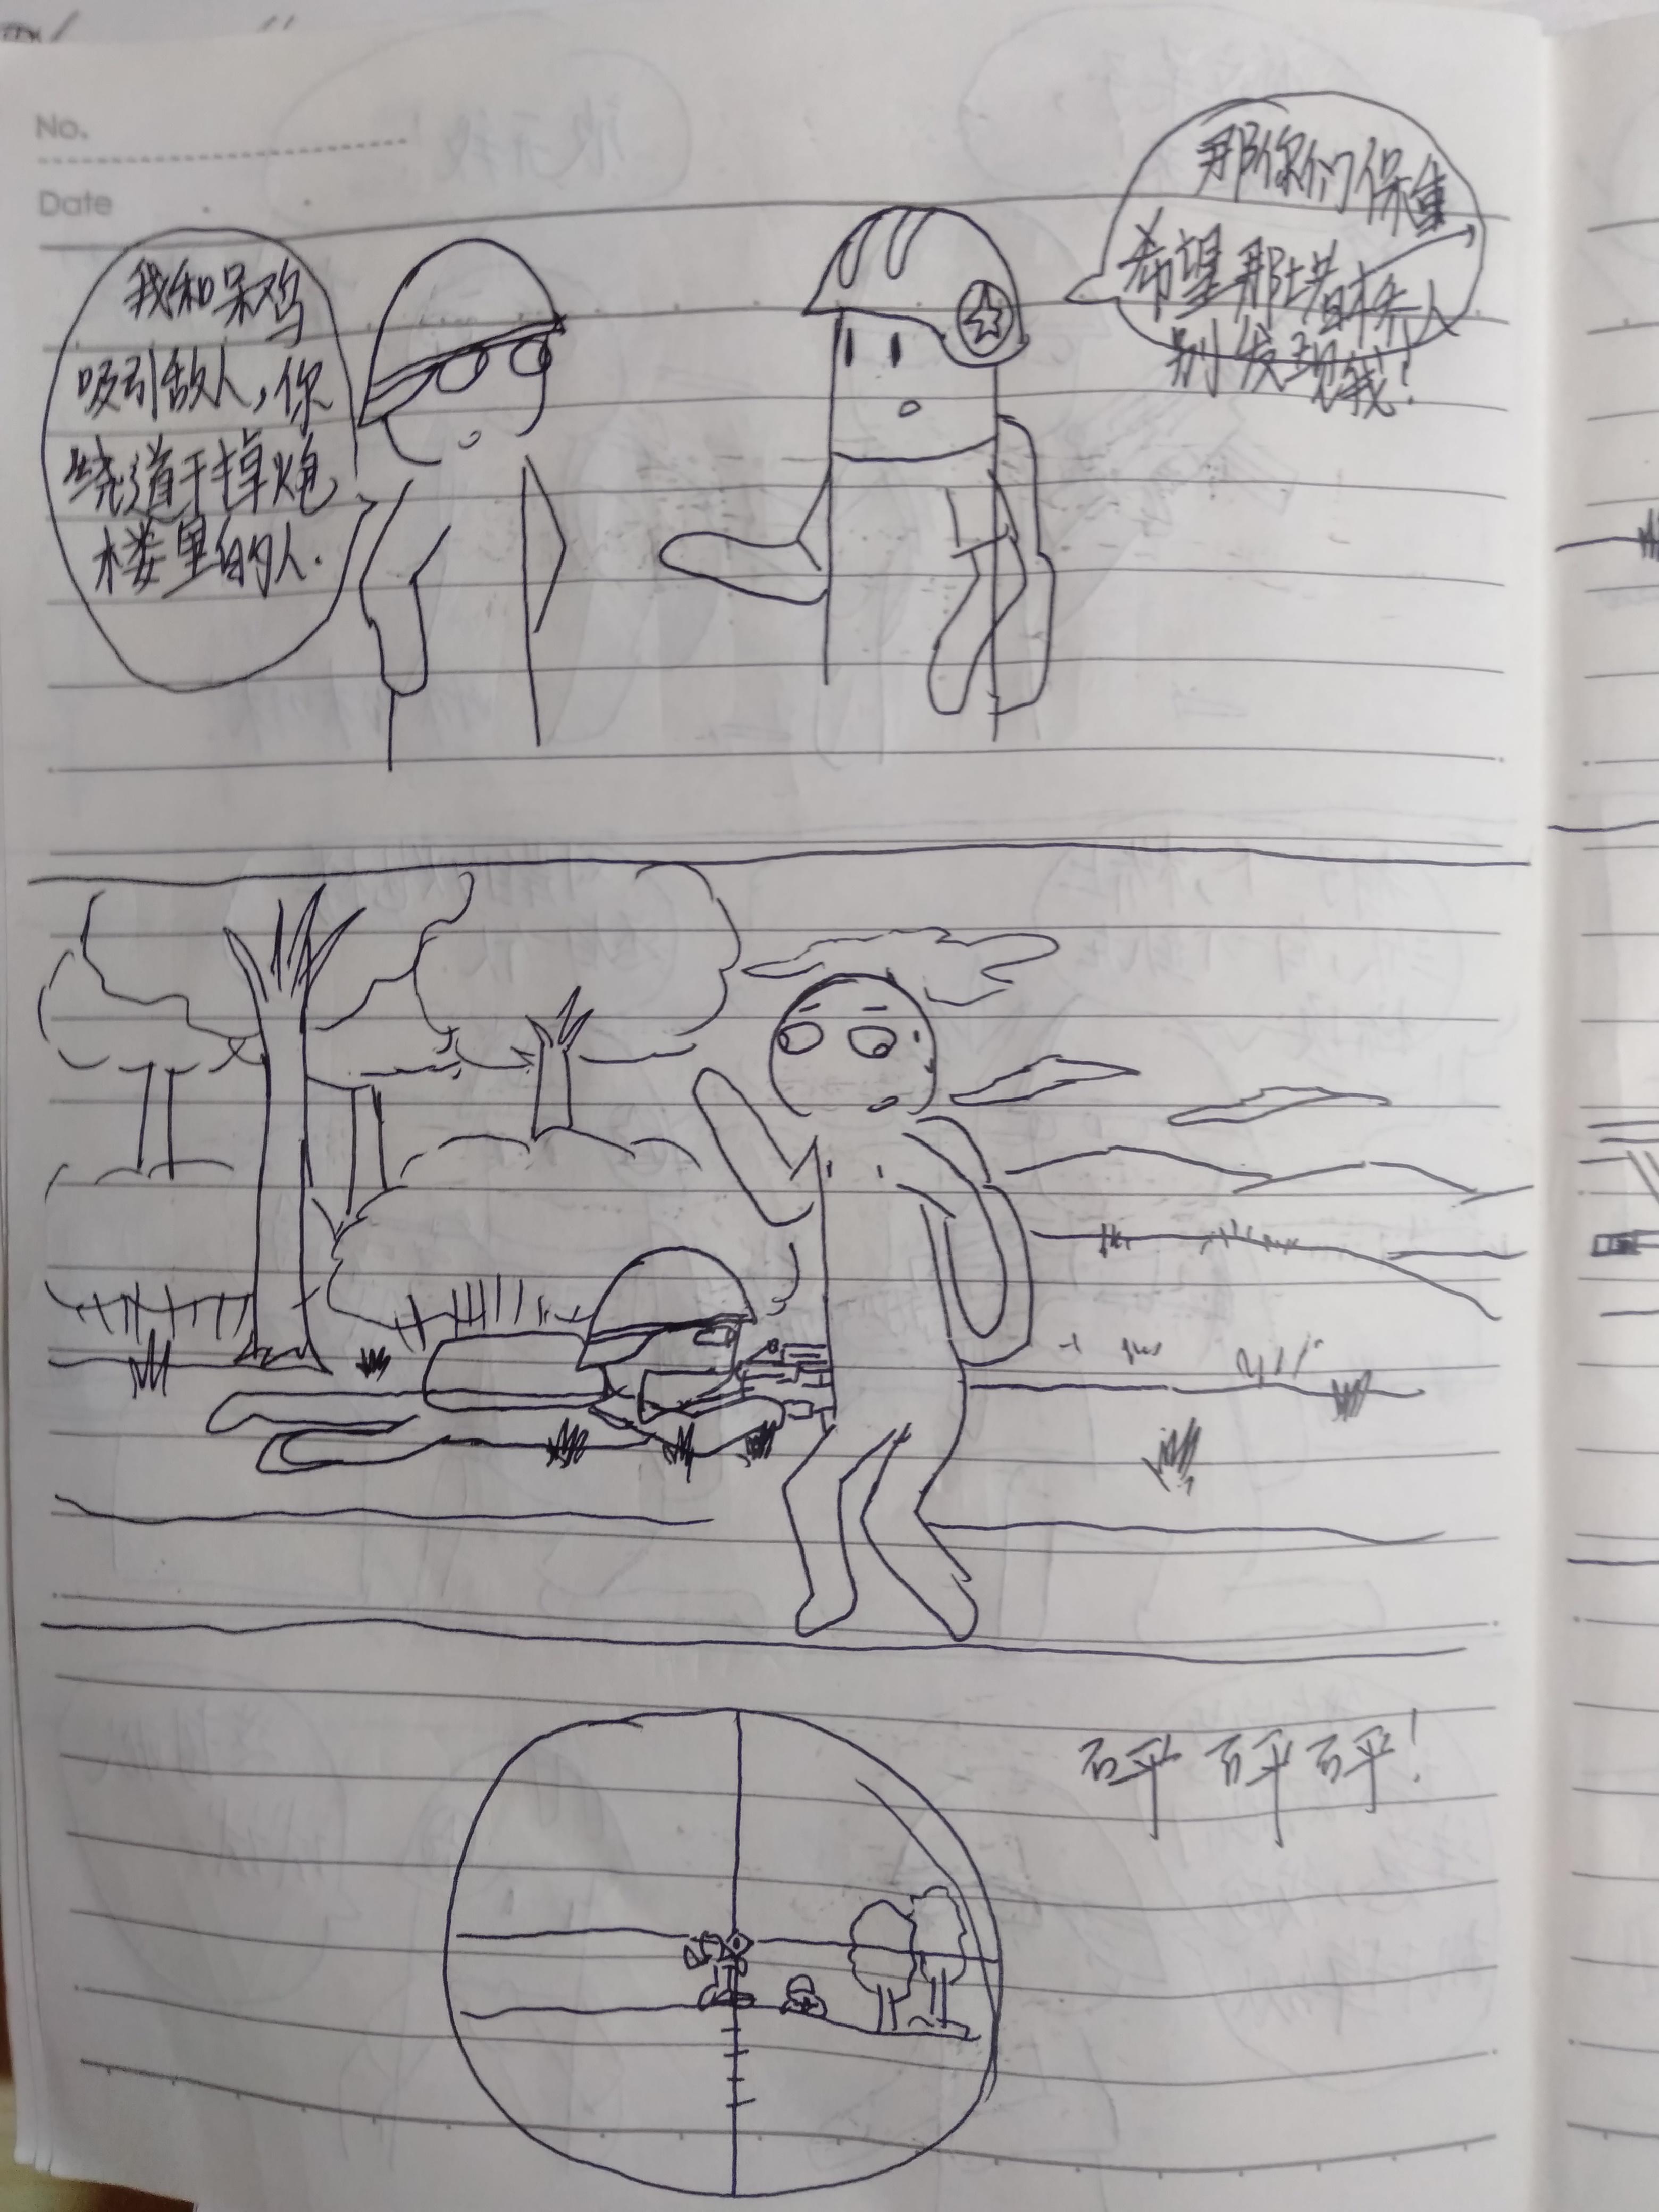 No.
Date
我和呆鸡
吸引敌人，你
绕道干掉炮
楼里的人.
那你们保重
希望那
别发现我！
砰 砰 砰！